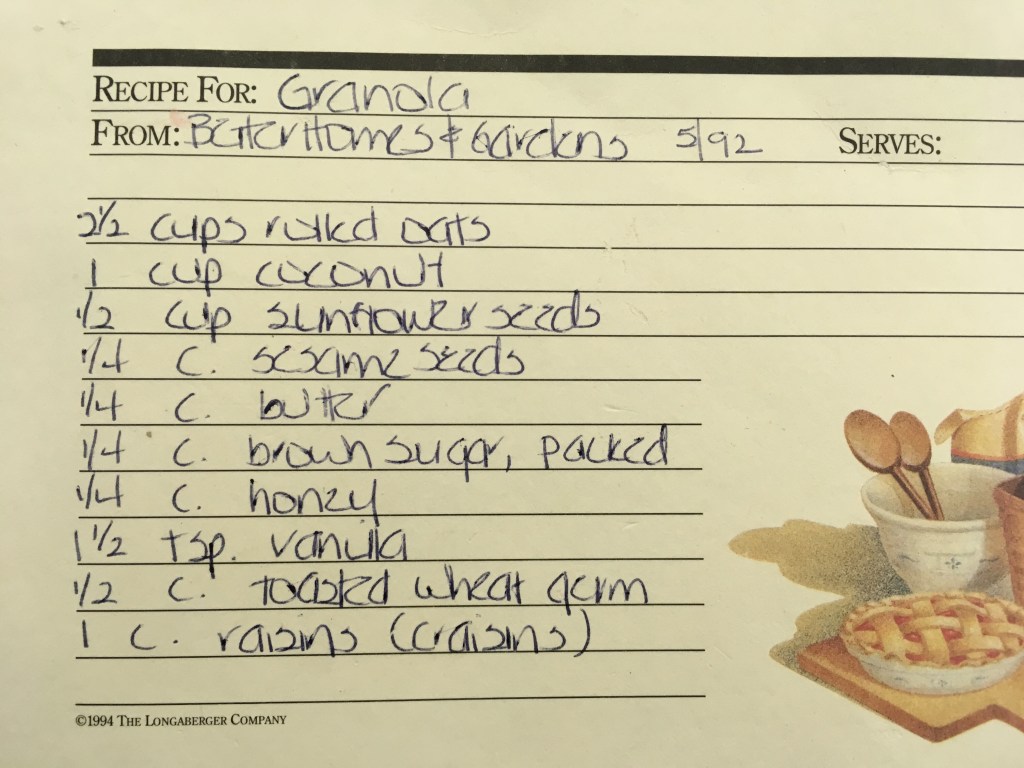 RECIPE FOR: Granola
FROM: Better Homes & Gardens 5/92 SERVES:
2 1/2 cups rolled oats
1 cup coconut
1/2 cup sunflower seeds
1/4 c. sesame seeds
1/4 c. butter
1/4 c. brown sugar, packed
1/4 c. honey
1 1/2 tsp. vanilla
1/2 c. toasted wheat germ
1 c. raisins (craisins)
©1994 THE LONGABERGER COMPANY